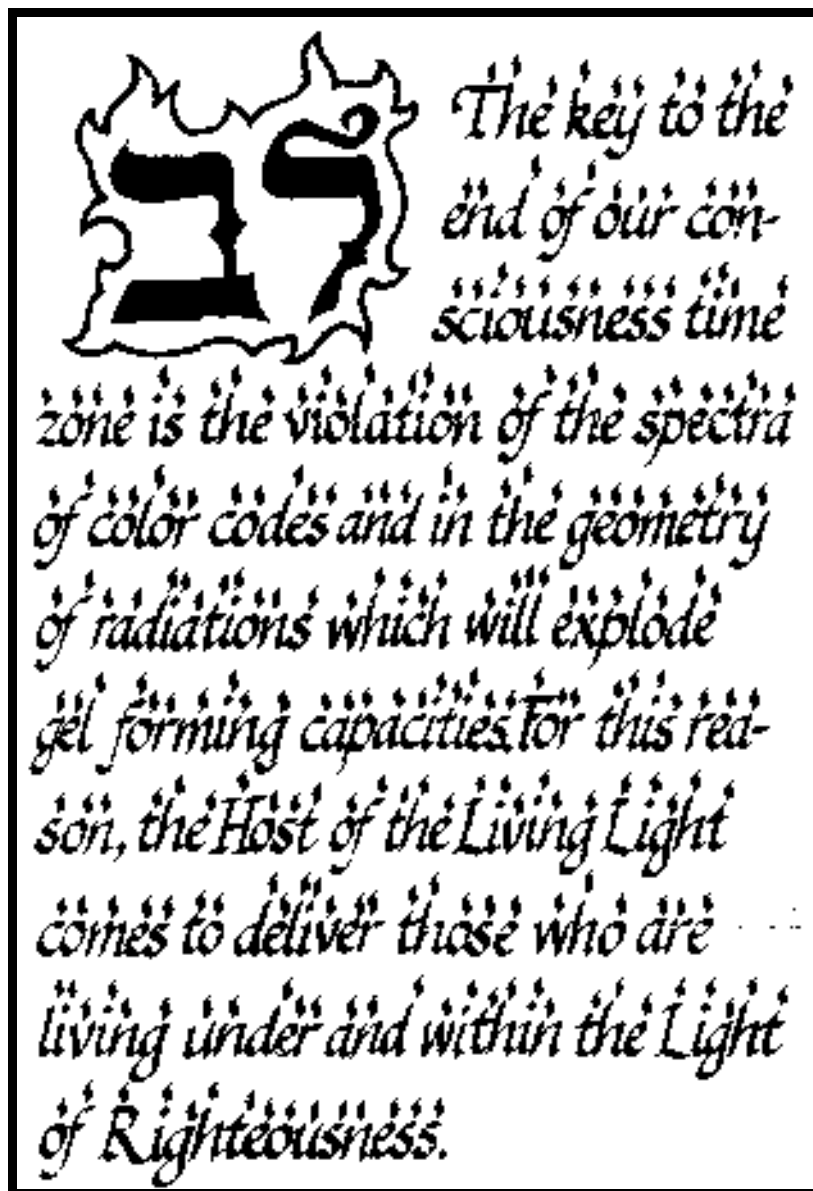 לב
The key to the
end of our con-
sciousness time
zone is the violation of the spectra
of color codes and in the geometry
of radiations which will explode
gel forming capacities. For this rea-
son, the Host of the Living Light
comes to deliver those who are
living under and within the Light
of Righteousness.